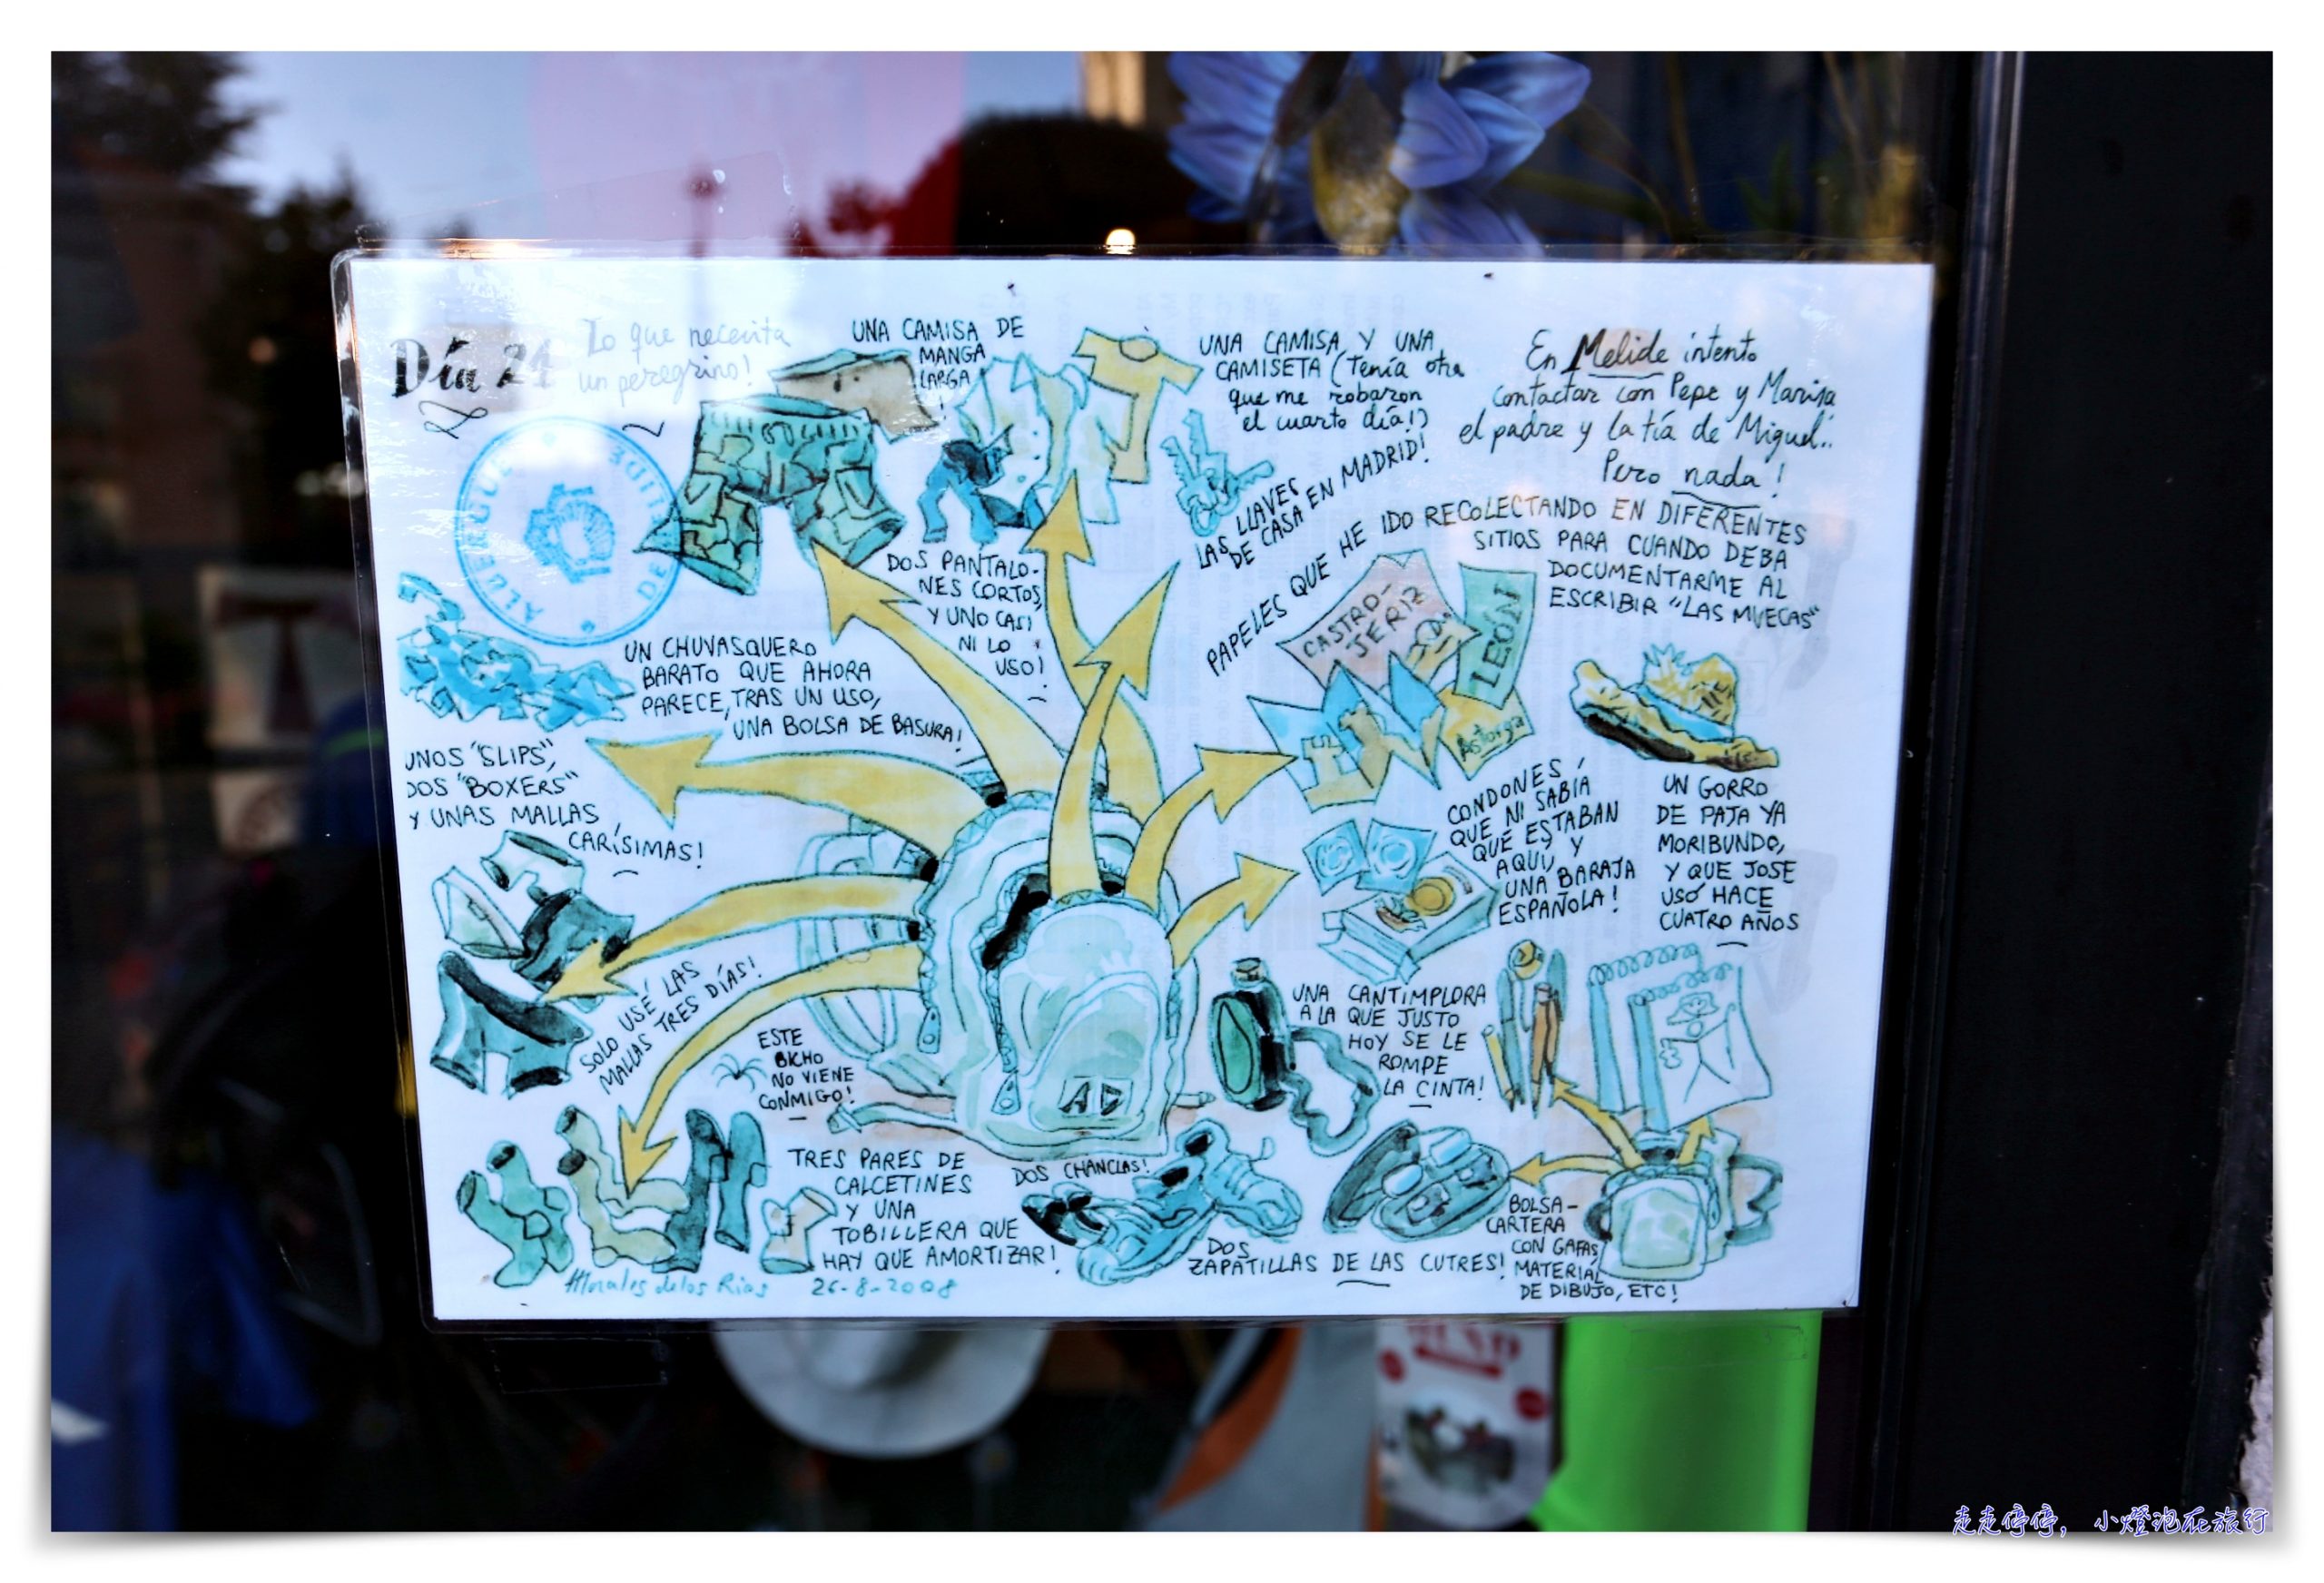 Día 21
Lo que necesita
un peregrino!
UNA CAMISA DE
MANGA
LARGA
!
UNA CAMISA Y UNA
CAMISETA (Tenía otra
que me robaron
el cuarto día!)
En Melide intento
contactar con Pepe y Marisa
el padre y la tía de Miguel..
Pero nada!
ALBERGUE
DE
LAS LLAVES
DE CASA EN MADRID!
PAPELES QUE HE IDO RECOLECTANDO EN DIFERENTES
SITIOS PARA CUANDO DEBA
DOCUMENTARME AL
ESCRIBIR "LAS MUECAS"
CASTRO-
JERIZ
LEÓN
Astorga
DOS PANTALO-
NES CORTOS,
Y UNO CASI
NI LO
USO!
UN CHUVASQUERO
BARATO QUE AHORA
PARECE, TRAS UN USO,
UNA BOLSA DE BASURA!
UNOS "SLIPS",
DOS "BOXERS"
Y UNAS MALLAS
CARÍSIMAS!
SOLO USÉ LAS
MALLAS TRES DÍAS!
CONDONES
QUE NI SABÍA
QUE ESTABAN
AQUI, Y
UNA BARAJA
ESPAÑOLA!
UN GORRO
DE PAJA YA
MORIBUNDO,
Y QUE JOSE
USÓ HACE
CUATRO AÑOS
ESTE
BICHO
NO VIENE
CONMIGO!
UNA CANTIMPLORA
A LA QUE JUSTO
HOY SE LE
ROMPE
LA CINTA!
TRES PARES DE
CALCETINES
Y UNA
TOBILLERA QUE
HAY QUE AMORTIZAR!
DOS CHANCLAS!
DOS
ZAPATILLAS DE LAS CUTRES!
BOLSA-
CARTERA
CON GAFAS,
MATERIAL
DE DIBUJO, ETC!
Morales de los Rios 26-8-2008
走走停停, 小燈泡在旅行